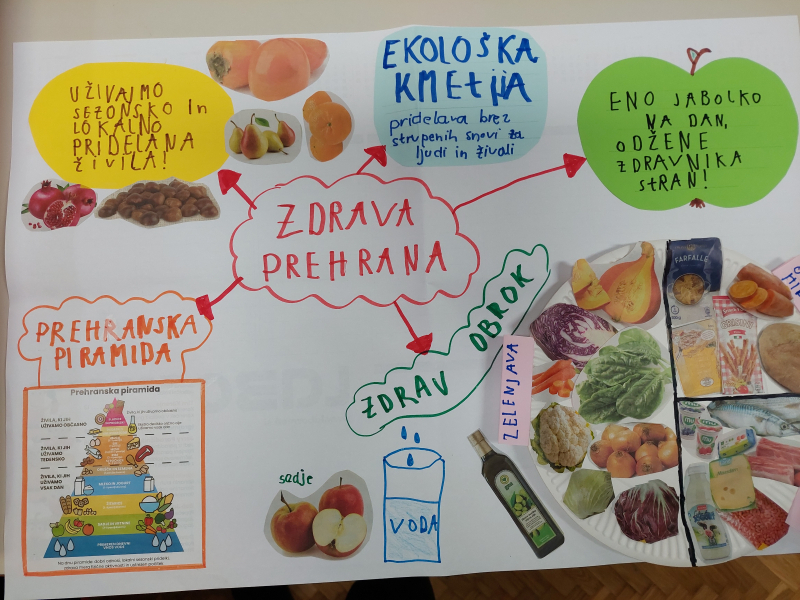 UŽIVAJMO
SEZONSKO in
LOKALNO
PRIDELANA
ŽIVILA!
EKOLOŠKA
KMETIJA
pridelava brez
strupenih snovi za
ljudi in živali
ENO JABOLKO
NA DAN,
ODŽENE
ZDRAVNIKA
STRAN!
ZDRAVA
PREHRANA
PREHRANSKA
PIRAMIDA
Prehranska piramida
ŽIVILA, KI JIH
UŽIVAMO OBČASNO
ŽIVILA, KI JIH
UŽIVAMO
TEDENSKO
ŽIVILA, KI JIH
UŽIVAMO
VSAK DAN
ZDRAV OBROK
sadje
VODA
ZELENJAVA
FARFALLE